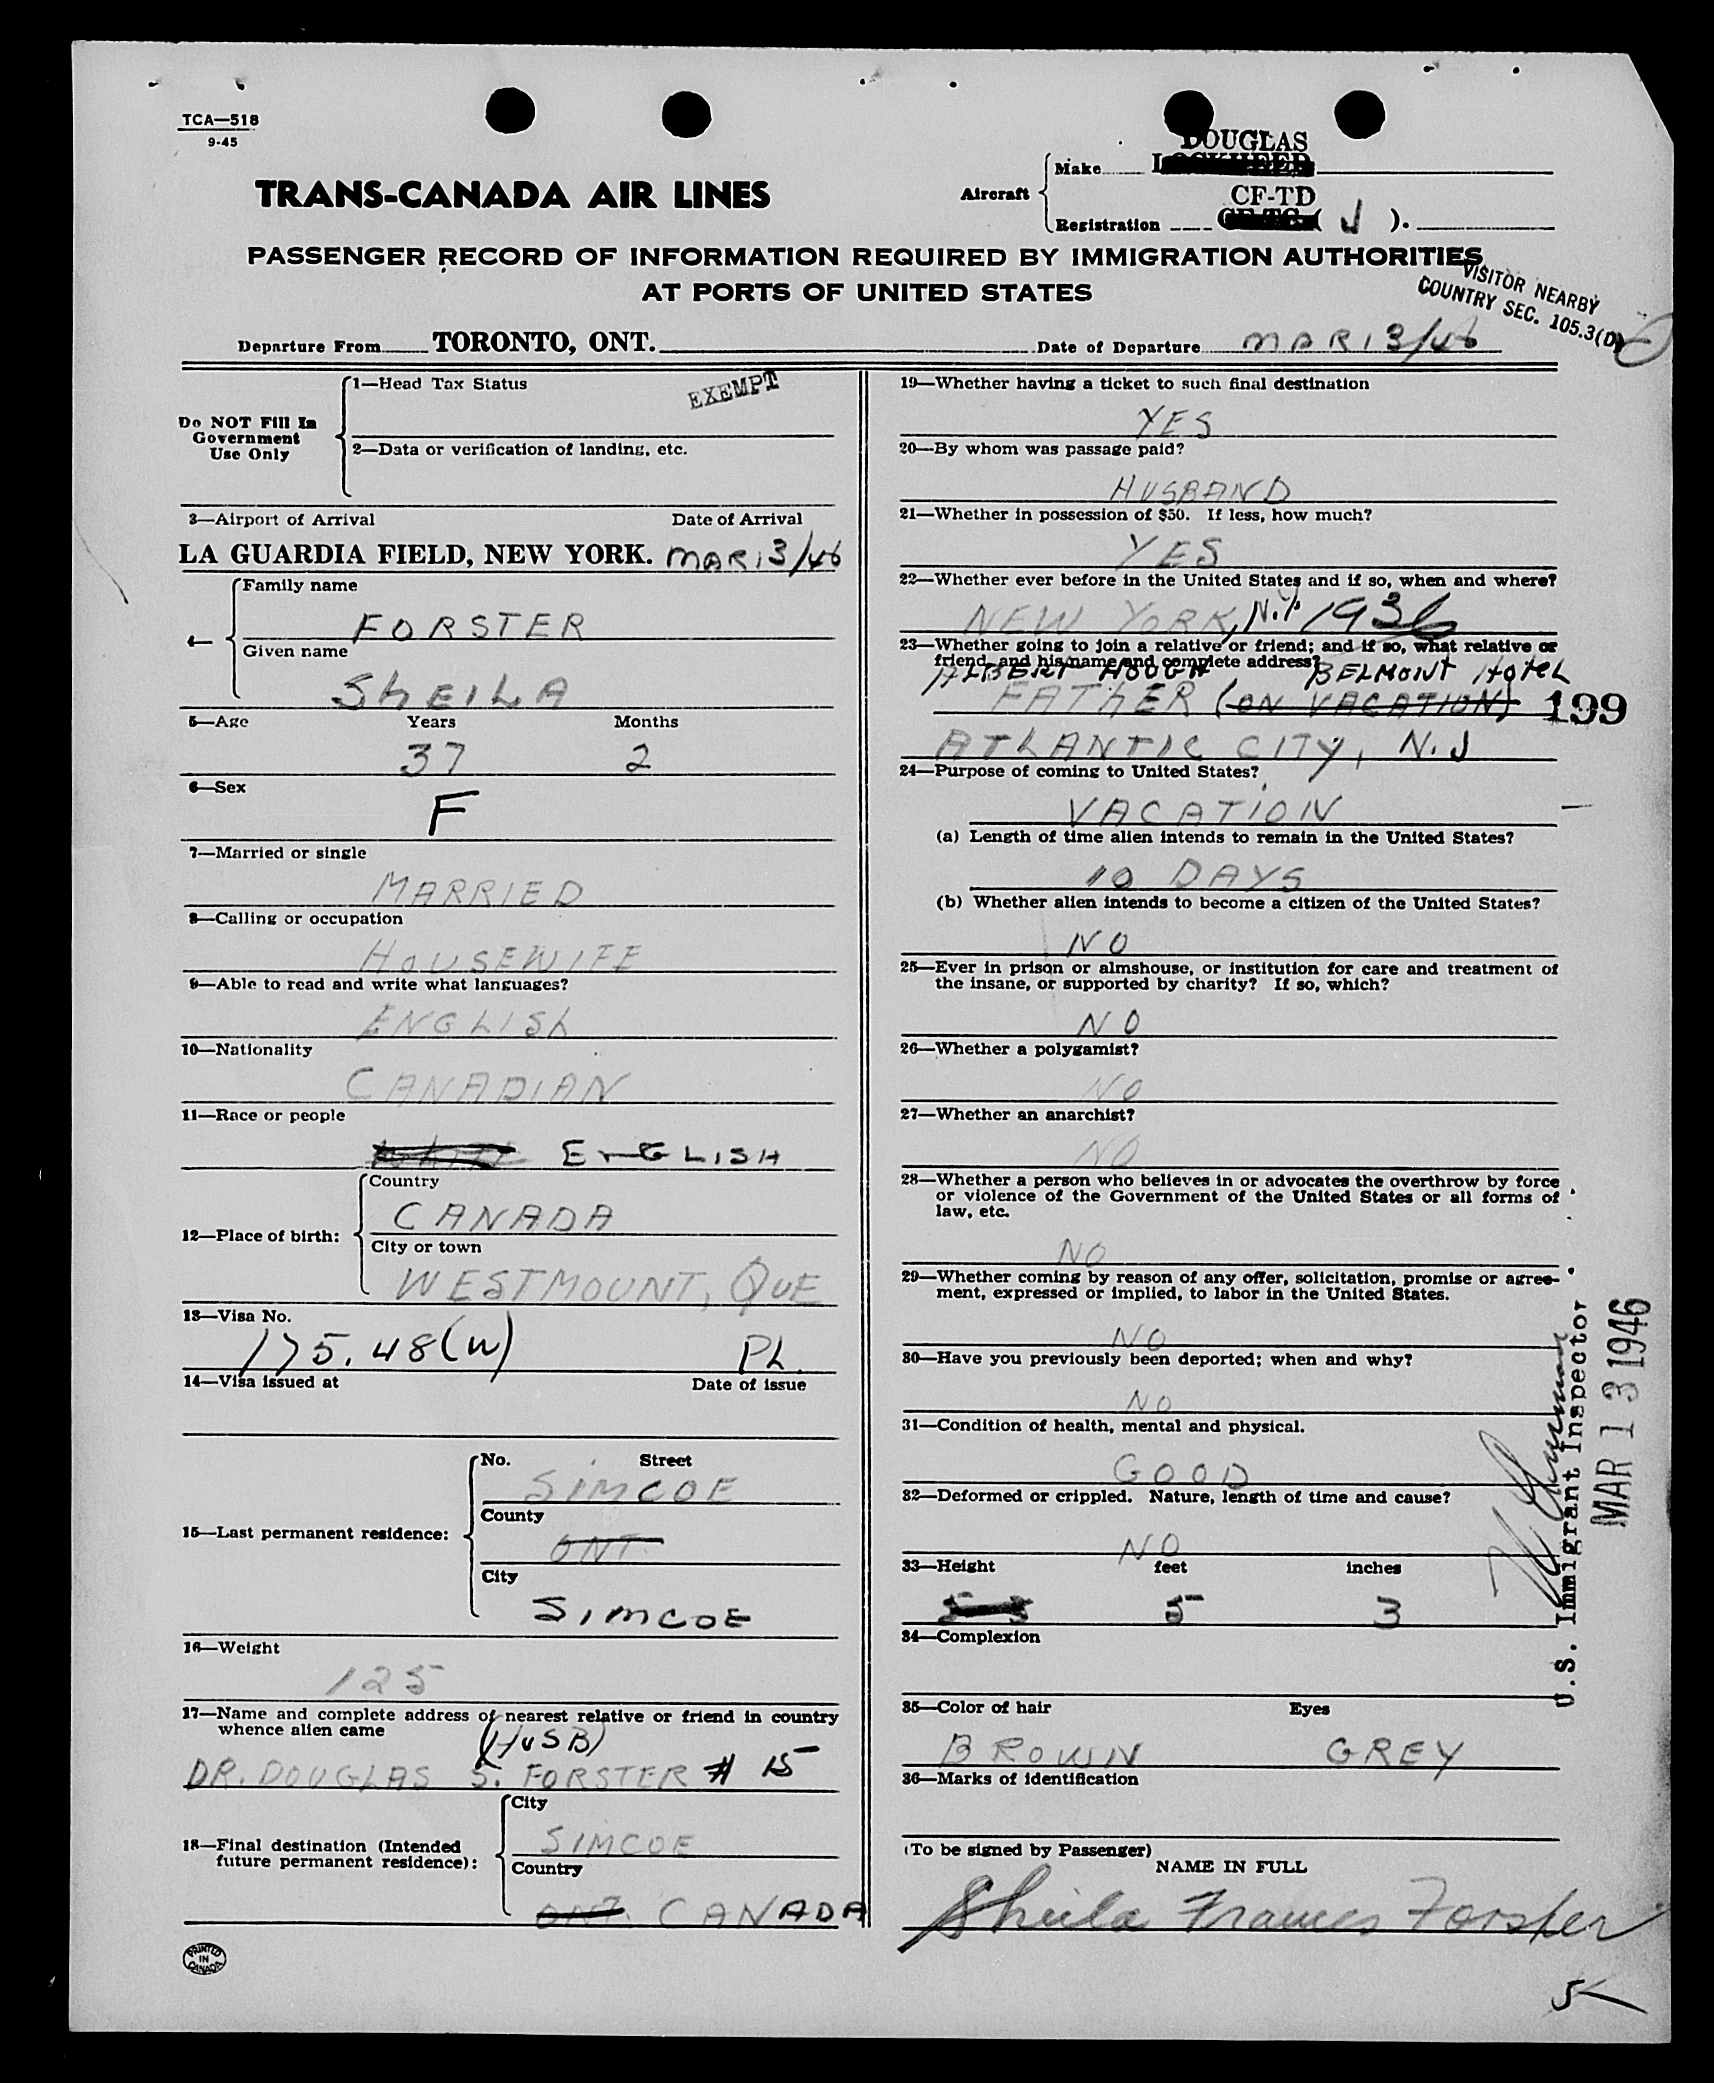 TCA—518
9-45
TRANS-CANADA AIR LINES
Aircraft
Make
DOUGLAS
LOCKHEED
Registration
CF-TD
CF-TC ( J ).
PASSENGER RECORD OF INFORMATION REQUIRED BY IMMIGRATION AUTHORITIES
AT PORTS OF UNITED STATES
VISITOR NEARBY
COUNTRY SEC. 105.3(D)
Departure From TORONTO, ONT.
Date of Departure MAR 13/46
Do NOT Fill In
Government
Use Only
1—Head Tax Status
EXEMPT
2—Data or verification of landing, etc.
3—Airport of Arrival Date of Arrival
LA GUARDIA FIELD, NEW YORK. MAR 13/46
4—
Family name
FORSTER
Given name
SHEILA
5—Age Years Months
37 2
6—Sex
F
7—Married or single
MARRIED
8—Calling or occupation
HOUSEWIFE
9—Able to read and write what languages?
ENGLISH
10—Nationality
CANADIAN
11—Race or people
ENGLISH
12—Place of birth:
Country
CANADA
City or town
WESTMOUNT, QUE
13—Visa No.
175.48(W) PL.
14—Visa issued at Date of issue
15—Last permanent residence:
No. Street
SIMCOE
County
ONT.
City
SIMCOE
16—Weight
125
17—Name and complete address of nearest relative or friend in country
whence alien came
(HUSB)
DR. DOUGLAS S. FORSTER # 15
18—Final destination (Intended
future permanent residence):
City
SIMCOE
Country
ONT. CANADA
PRINTED
IN
CANADA
19—Whether having a ticket to such final destination
YES
20—By whom was passage paid?
HUSBAND
21—Whether in possession of $50. If less, how much?
YES
22—Whether ever before in the United States and if so, when and where?
NEW YORK, N.Y. 1936
23—Whether going to join a relative or friend; and if so, what relative or
friend, and his name and complete address?
ALBERT HOUGH BELMONT HOTEL
FATHER (ON VACATION) 199
ATLANTIC CITY, N.J
24—Purpose of coming to United States?
VACATION
(a) Length of time alien intends to remain in the United States?
10 DAYS
(b) Whether alien intends to become a citizen of the United States?
NO
25—Ever in prison or almshouse, or institution for care and treatment of
the insane, or supported by charity? If so, which?
NO
26—Whether a polygamist?
NO
27—Whether an anarchist?
NO
28—Whether a person who believes in or advocates the overthrow by force
or violence of the Government of the United States or all forms of
law, etc.
NO
29—Whether coming by reason of any offer, solicitation, promise or agree-
ment, expressed or implied, to labor in the United States.
NO
30—Have you previously been deported; when and why?
NO
31—Condition of health, mental and physical.
GOOD
32—Deformed or crippled. Nature, length of time and cause?
NO
33—Height feet inches
5 3
34—Complexion
35—Color of hair Eyes
BROWN GREY
36—Marks of identification
(To be signed by Passenger)
NAME IN FULL
Sheila Frances Forster
U.S. Immigrant Inspector
MAR 13 1946
5